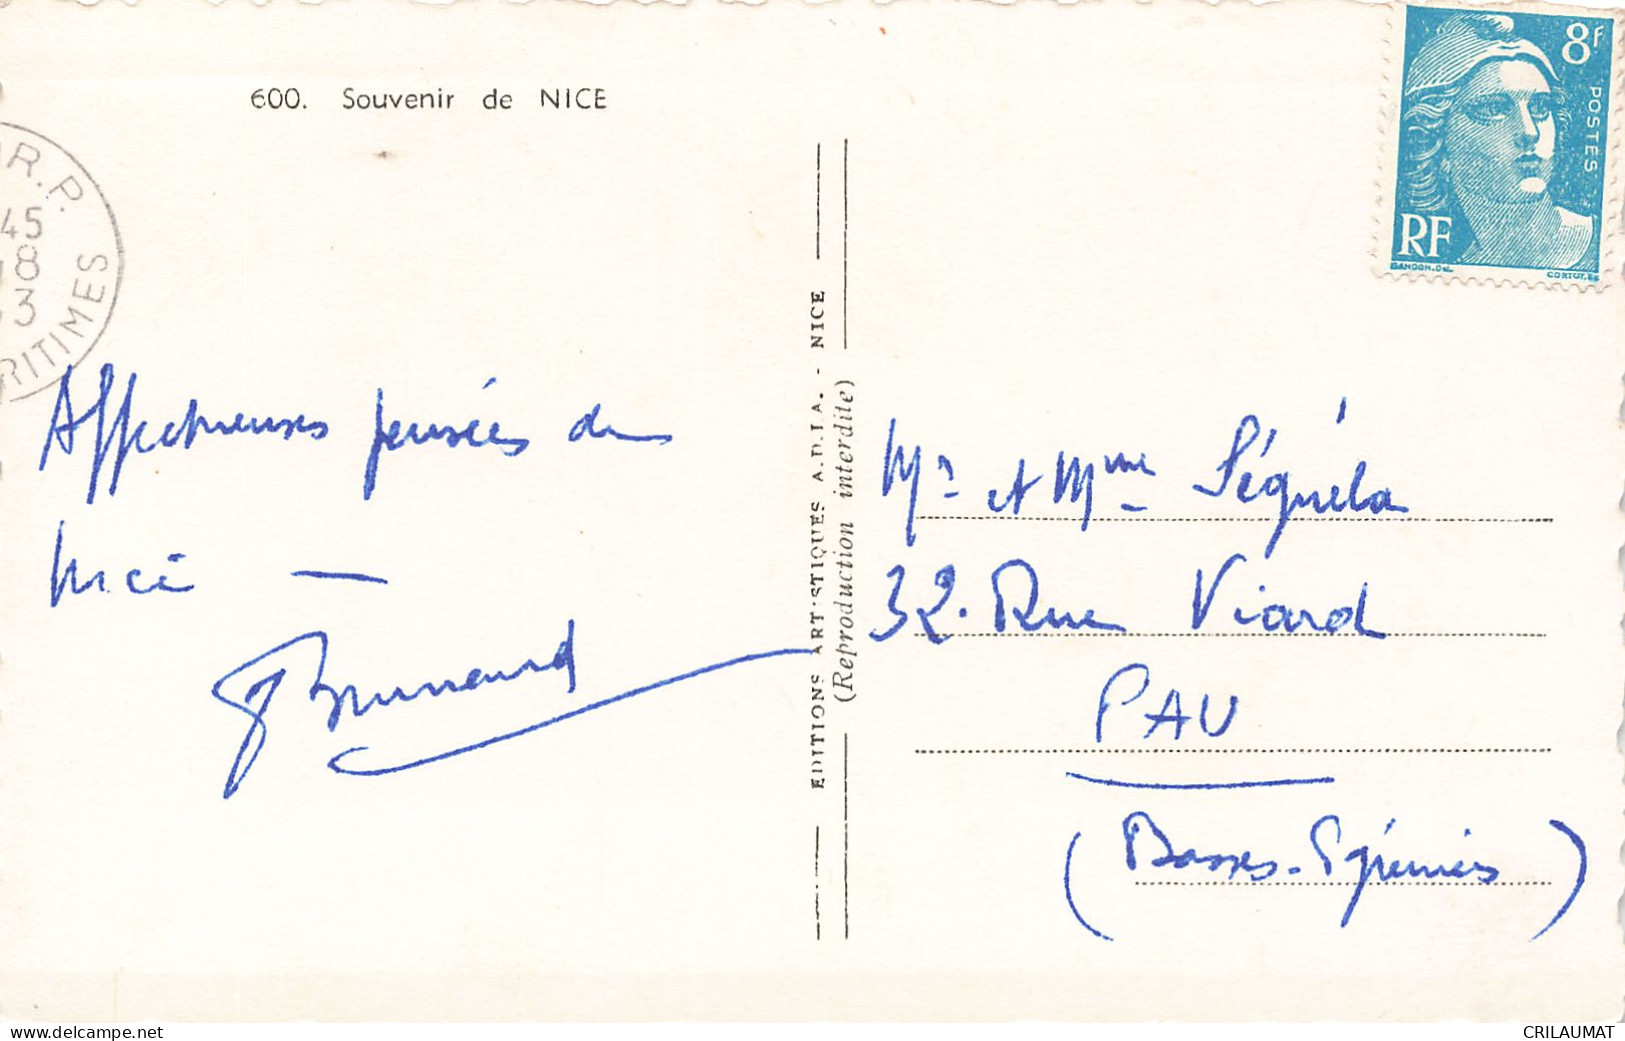 600. Souvenir de NICE
R.P.
45
8
3
RITIMES
Affectueuses pensées de
Nice —
EDITIONS ARTISTIQUES A.D.I.A. - NICE
(Reproduction interdite)
8f
POSTES
RF
GANDON.DEL.
CORTOT.SC
Mr et Mme Séguéla
32. Rue Viard
PAU
(Basses-Pyrénées)
www.delcampe.net
CRILAUMAT